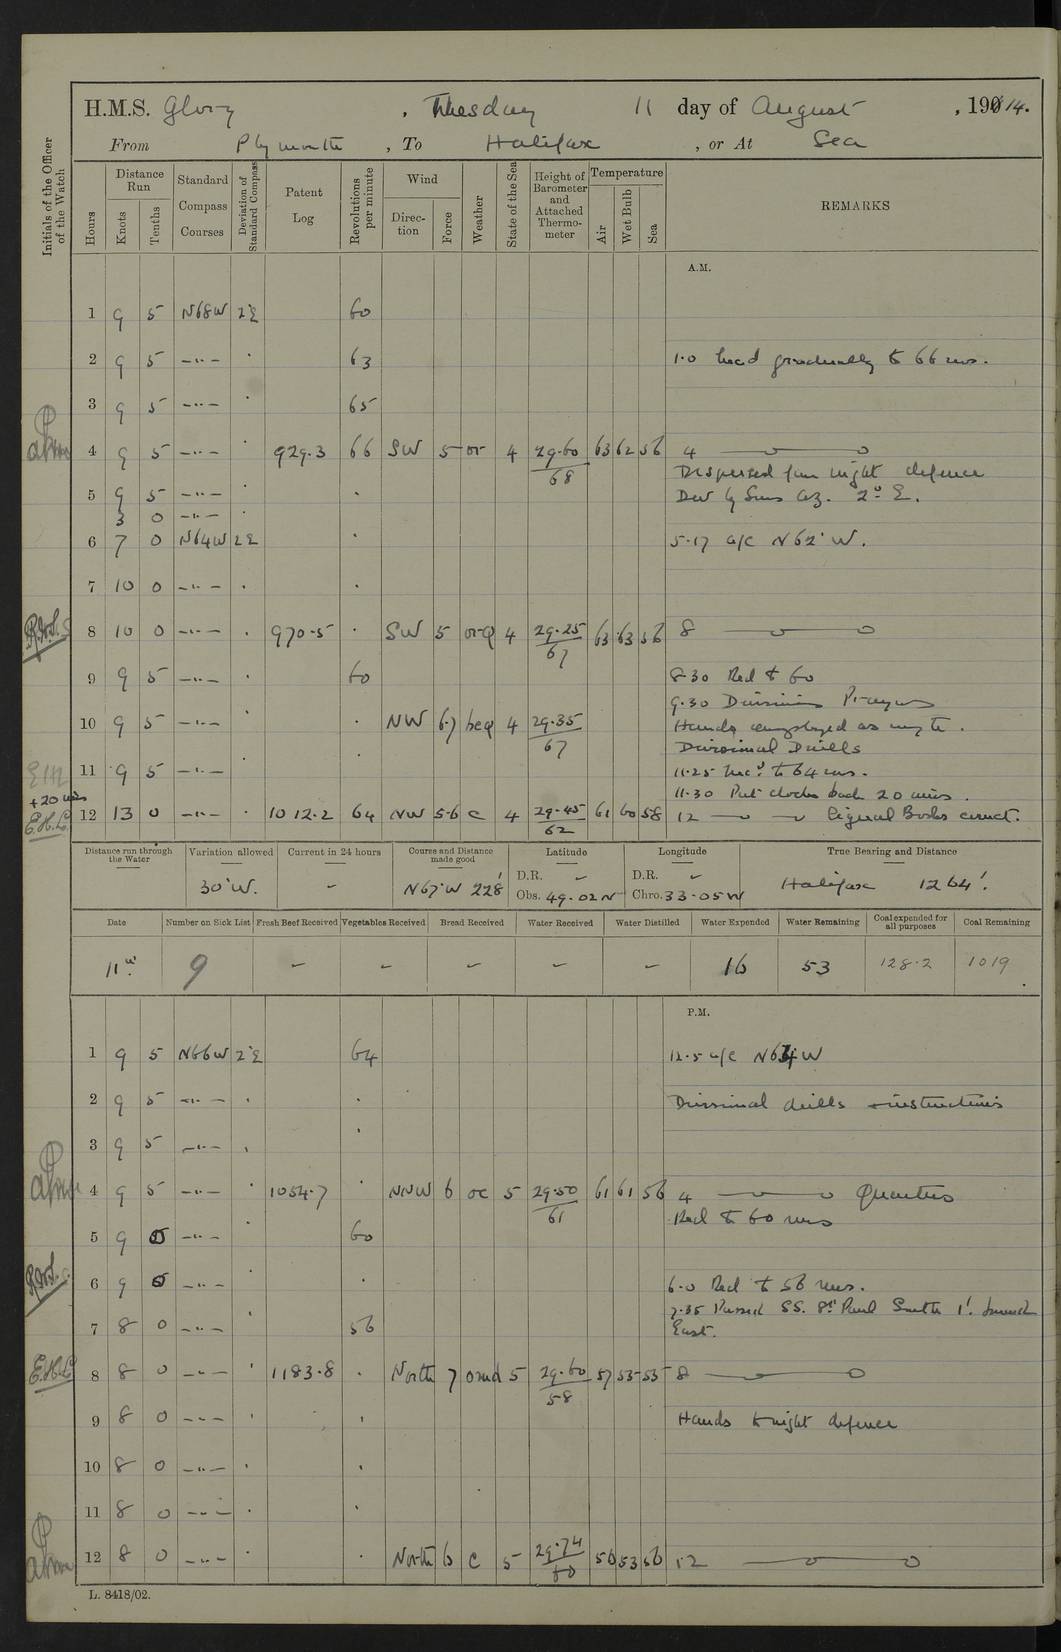 H.M.S. Glory, Tuesday 11 day of August, 1914.
From Plymouth, To Halifax, or At Sea
Initials of the Officer of the Watch
Hours
Distance Run
Knots
Tenths
Standard Compass Courses
Deviation of Standard Compass
Patent Log
Revolutions per minute
Wind
Direction
Force
Weather
State of the Sea
Height of Barometer and Attached Thermometer
Temperature
Air
Wet Bulb
Sea
REMARKS
A.M.
1 9 5 N68W 2°E 60
2 9 5 —"— · 63 1.0 Incd gradually to 66 revs.
3 9 5 —"— · 65
4 9 5 —"— · 929.3 66 SW 5 or 4 29.60/68 63 62 56 4
Dispersed from night defence
5 9 5 —"— · · Dev by Suns az. 2° E.
3 0 —"— ·
6 7 0 N64W 2E · 5.17 a/c N62°W.
7 10 0 —"— · ·
8 10 0 —"— · 970.5 · SW 5 orq 4 29.25/67 63 63 56 8
9 9 5 —"— · 60 8.30 Red to 60
9.30 Divisions Prayers
10 9 5 —"— · · NW 6.7 bcq 4 29.35/67 Hands employed as req te.
Divisional Drills
11 9 5 —"— · · 11.25 Inc d to 64 revs.
+20 mins 11.30 Put clocks back 20 mins.
E.H.L. 12 13 0 —"— · 1012.2 64 NW 5.6 c 4 29.45/62 61 60 58 12 Signal Books correct.
Distance run through the Water
Variation allowed
Current in 24 hours
Course and Distance made good
Latitude
Longitude
True Bearing and Distance
30°W. – N67°W 228' D.R. – Obs. 49.02N D.R. – Chro. 33.05W Halifax 1264'.
Date
Number on Sick List
Fresh Beef Received
Vegetables Received
Bread Received
Water Received
Water Distilled
Water Expended
Water Remaining
Coal expended for all purposes
Coal Remaining
11th 9 – – – – – 16 53 128.2 1019
P.M.
1 9 5 N66W 2°E 64 12.5 a/c N64W
2 9 5 —"— · · Divisional drills & instructions
3 9 5 —"— · ·
4 9 5 —"— · 1054.7 · NNW 6 oc 5 29.50/61 61 61 56 4 Quarters
Red to 60 revs
5 9 0 —"— 60
6 9 0 —"— · · 6.0 Red to 56 revs.
7.35 Passed SS. St Paul South 1'. bound
7 8 0 —"— · 56 East.
E.H.L. 8 8 0 —"— · 1183.8 · North 7 omd 5 29.60/58 57 53 55 8
9 8 0 —"— · · Hands to night defence
10 8 0 —"— · ·
11 8 0 —"— · ·
12 8 0 —"— · · North 6 c 5 29.74/60 56 53 56 12
L. 8418/02.